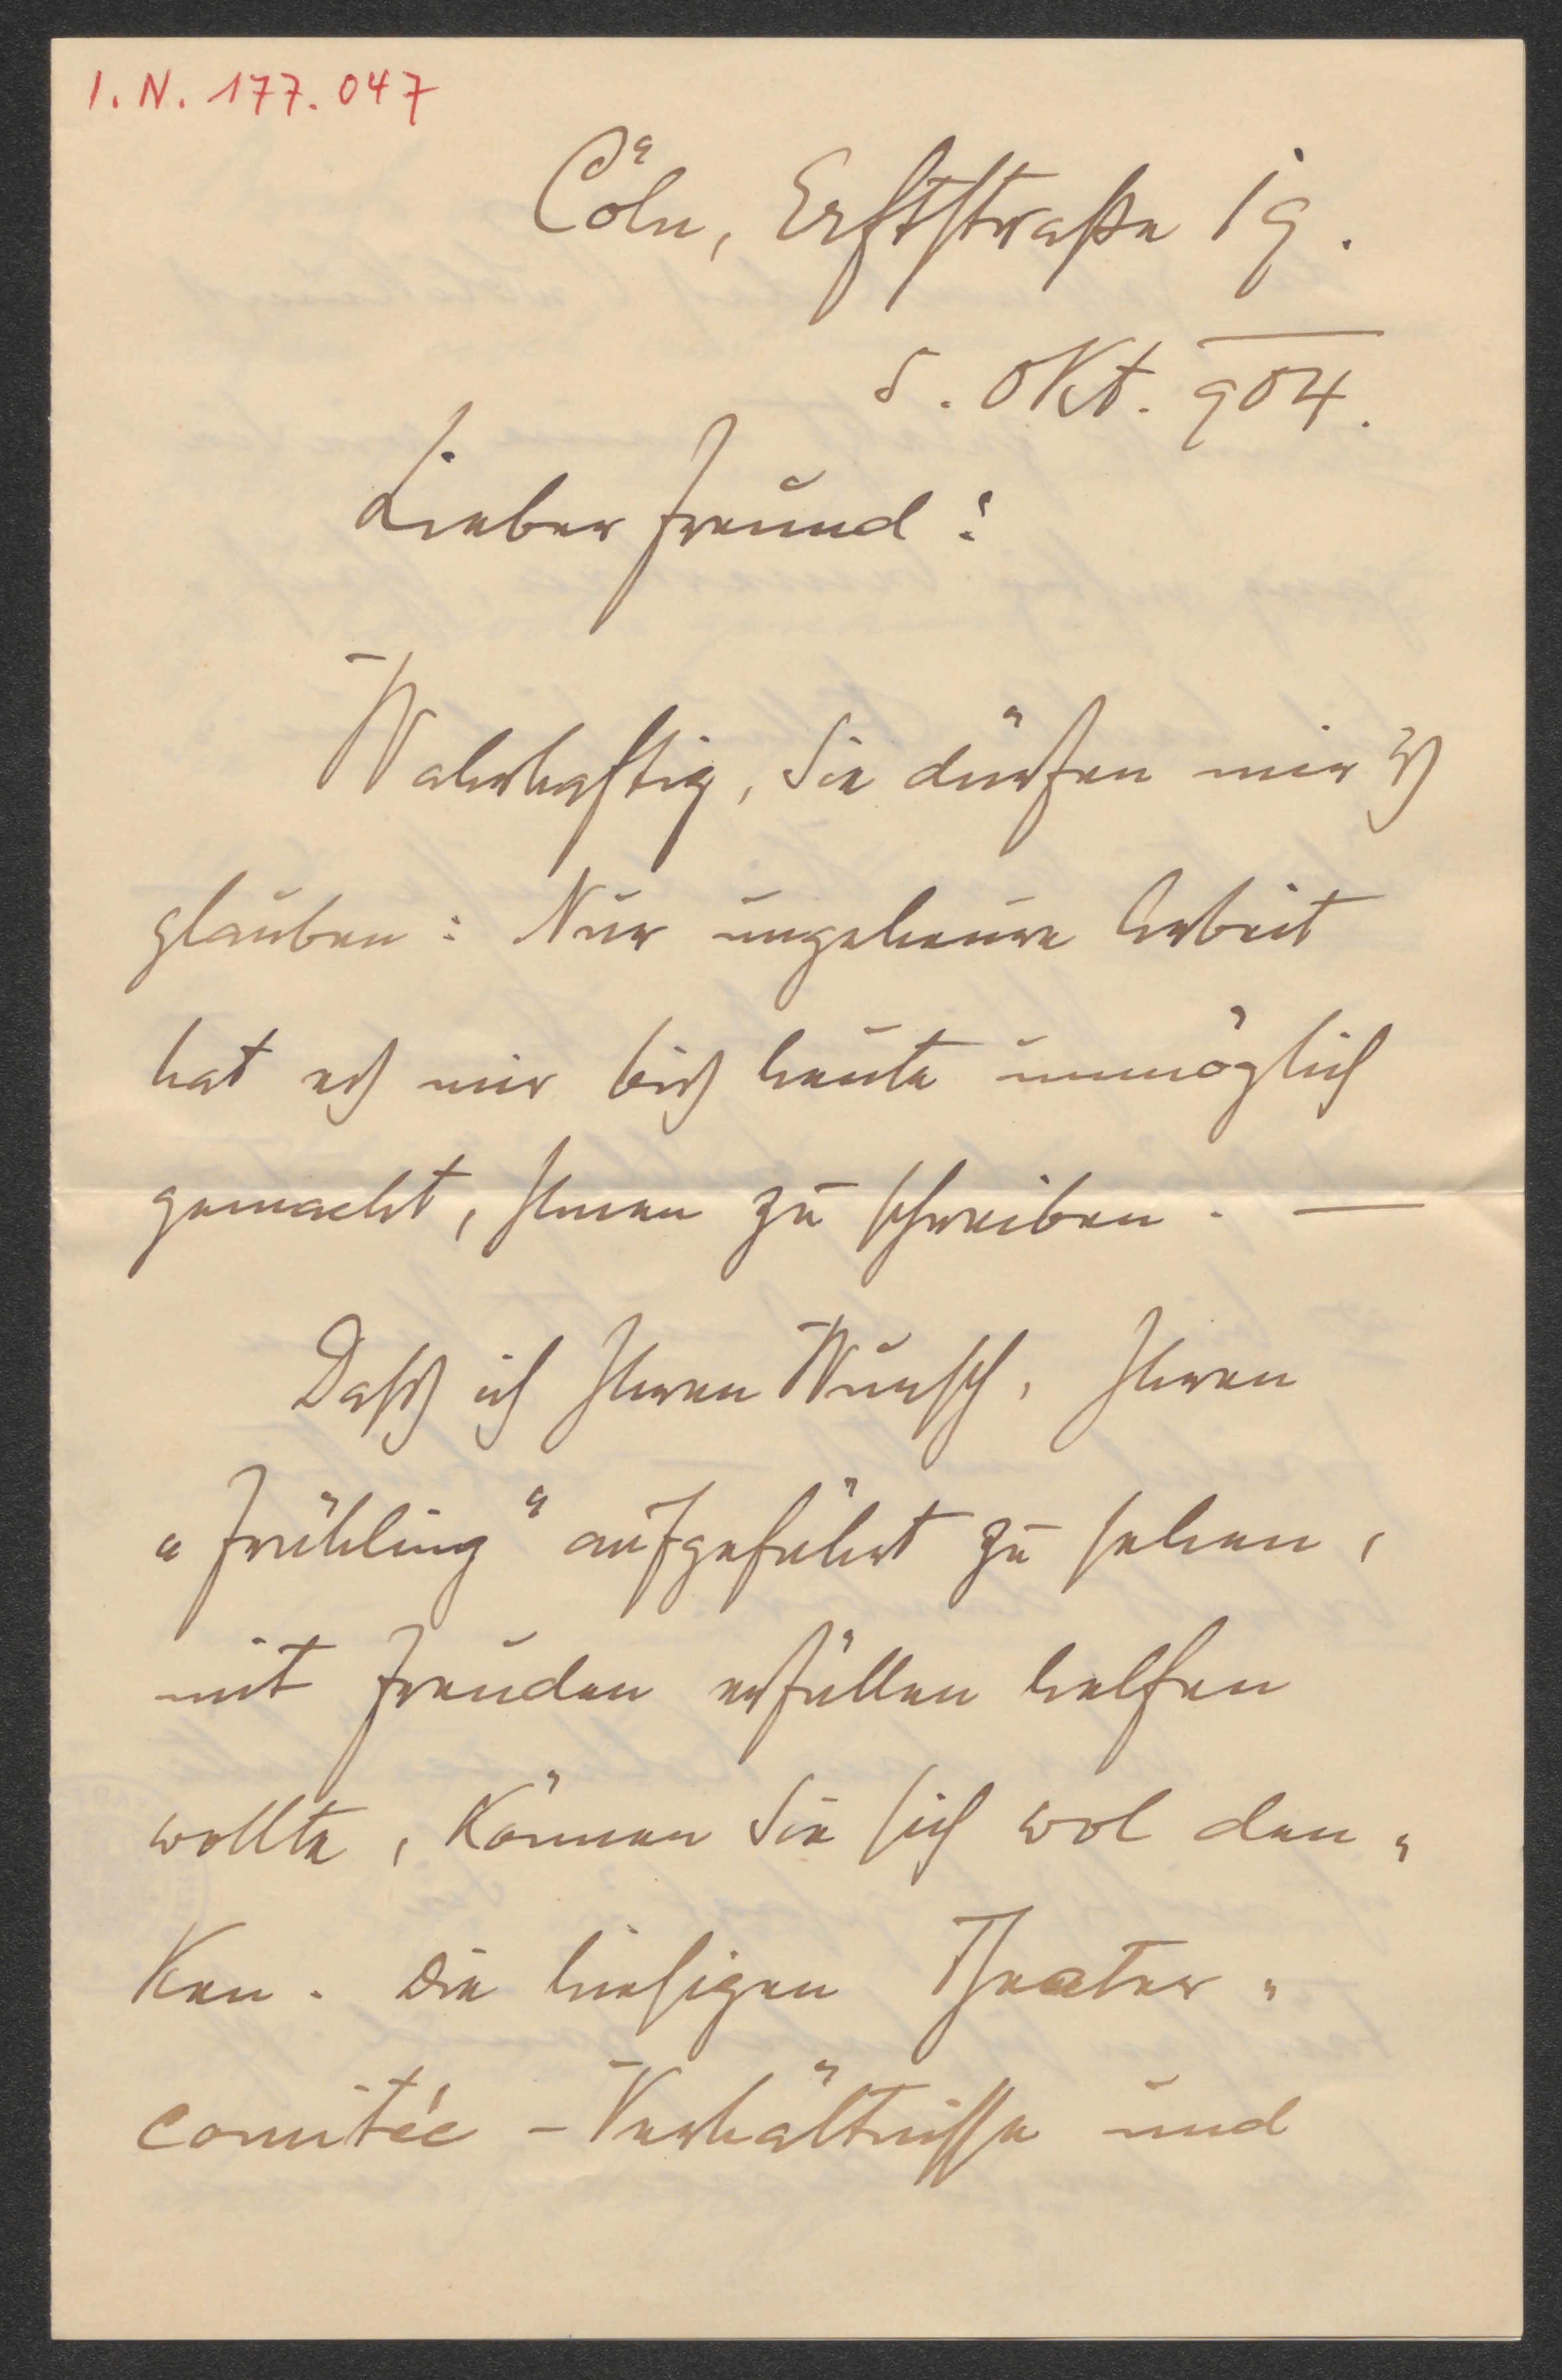 I. N. 177.047
Cöln, Erftstraße 19.
5. Okt. 904.
Lieber Freund!
Wahrhaftig, Sie dürfen mir's
glauben: Nur ungeheure Arbeit
hat es mir bis heute unmöglich
gemacht, Ihnen zu schreiben. —
Dass ich Ihren Wunsch, Ihren
„Frühling“ aufgeführt zu sehen,
mit Freuden erfüllen helfen
wollte, können Sie sich wol den„
ken. Die hiesigen Theater„
comitée - Verhältnisse und